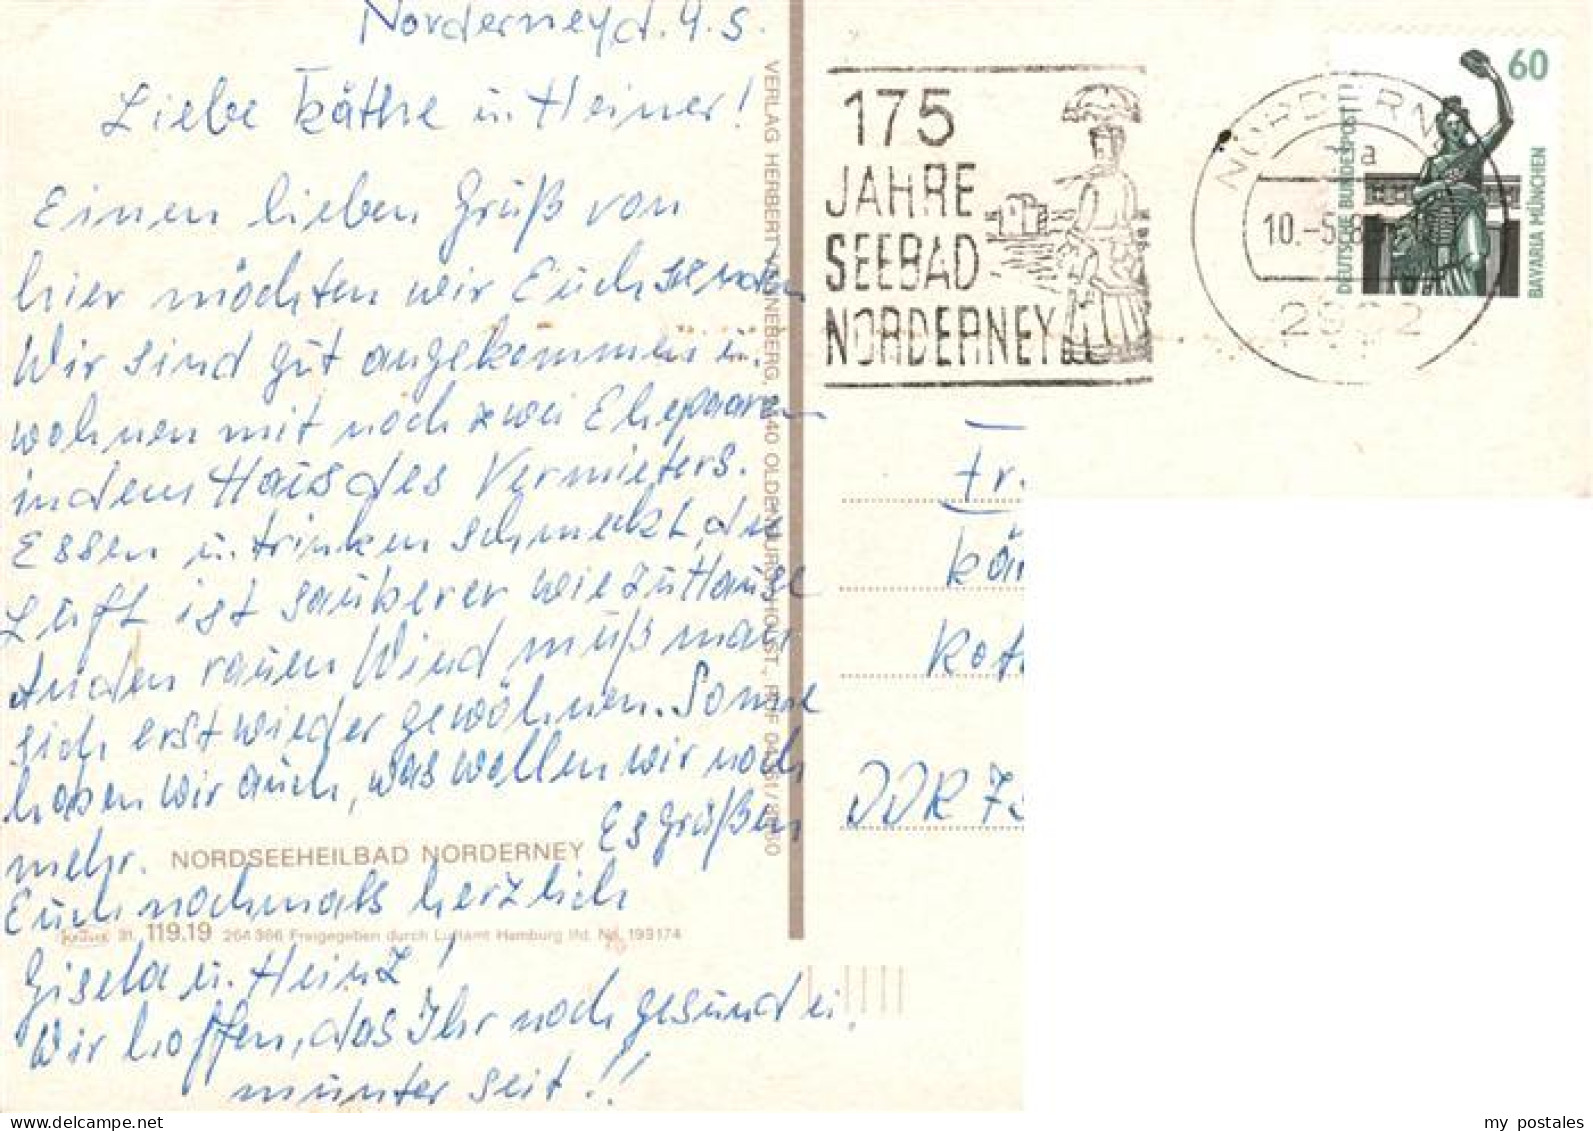 Norderney d. 9.5.
Liebe Käthe u. Heiner!
Einen lieben Gruß von
hier möchten wir Euch senden
Wir sind gut angekommen u.
wohnen mit noch zwei Ehepaaren
in dem Haus des Vermieters.
Essen u. trinken schmeckt, die
Luft ist sauberer wie zu Hause
An den rauen Wind muß man
sich erst wieder gewöhnen. Sonne
haben wir auch, was wollen wir noch
mehr. Es grüßen
Euch nochmals herzlich
Gisela u. Heinz!
Wir hoffen, das Ihr noch gesund u.
munter seit!!
NORDSEEHEILBAD NORDERNEY
Krüger 31. 119.19 264 386 Freigegeben durch Luftamt Hamburg lfd. Nr. 193174
VERLAG HERBERT HOLST.,
175
JAHRE
SEEBAD
NORDERNEY
NORDERN
a
10.-5.8
2982
60
DEUTSCHE BUNDESPOST
BAVARIA MÜNCHEN
Fr.
Kä
Kot
DDR 75
my postales